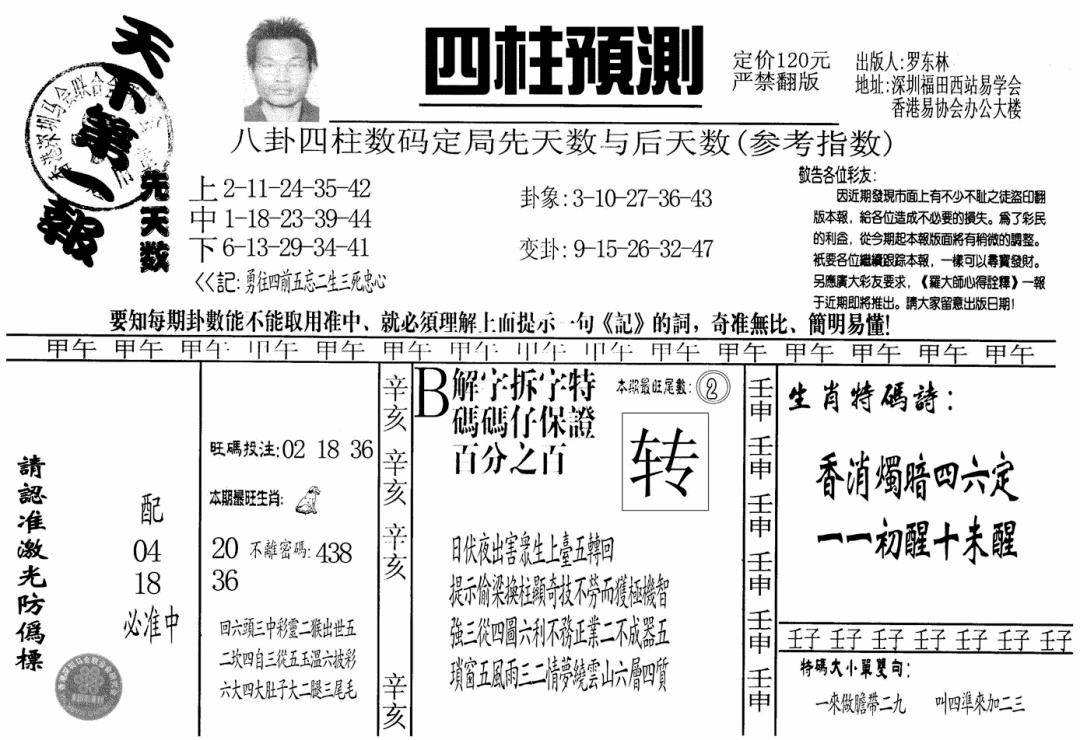 天下第一報
四柱預測
定价120元
严禁翻版
出版人:罗东林
地址:深圳福田西站易学会
香港易协会办公大楼
八卦四柱数码定局先天数与后天数(参考指数)
先天数
上 2-11-24-35-42
中 1-18-23-39-44
下 6-13-29-34-41
<<記:勇往四前五忘二生三死忠心
卦象:3-10-27-36-43
变卦:9-15-26-32-47
敬告各位彩友:
因近期發現市面上有不少不耻之徒盜印翻
版本報,給各位造成不必要的損失。爲了彩民
的利益,從今期起本報版面將有稍微的調整。
衹要各位繼續跟踪本報,一樣可以尋寶發財。
另應廣大彩友要求,《羅大師心得詮釋》一報
于近期即將推出。請大家留意出版日期!
要知每期卦數能不能取用准中、就必須理解上面提示一句《記》的詞,奇准無比、簡明易懂!
甲午 甲午 甲午 甲午 甲午 甲午 甲午 甲午 甲午 甲午 甲午 甲午 甲午 甲午 甲午
請認准激光防僞標
配
04
18
必准中
旺碼投注:02 18 36
本期最旺生肖:
20 不離密碼:438
36
回六頭三中彩靈二猴出世五
二坎四自三從五玉溫六披彩
六大四大肚子大二腿三尾毛
辛亥
辛亥
辛亥
辛亥
B解字拆字特
碼碼仔保證
百分之百
本期最旺尾數:2
转
日伏夜出害衆生上臺五轉回
提示偷梁換柱顯奇技不勞而獲極機智
強三從四圖六利不務正業二不成器五
瑣窗五風雨三二情夢繞雲山六層四質
壬申
壬申
壬申
壬申
壬申
壬申
生肖特碼詩:
香消燭暗四六定
一一初醒十未醒
壬子 壬子 壬子 壬子 壬子 壬子 壬子
特碼大小單雙句:
一來做膽帶二九 叫四準來加二三